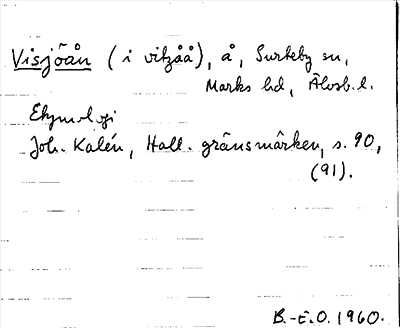 Visjöån (i vitzåå), å, Surteby sn,
Marks hd, Älvsb. l.
Etymologi
Joh. Kalén, Hall. gränsmärken, s. 90,
(91).
B.-E.O. 1960.